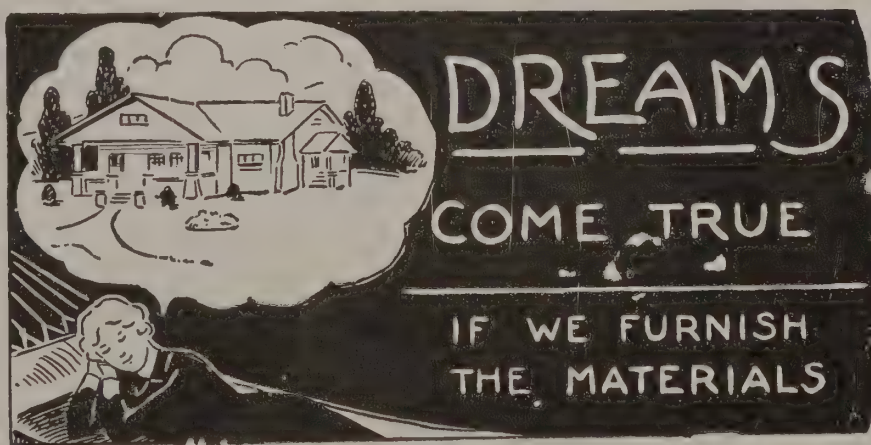 DREAMS
COME TRUE
IF WE FURNISH
THE MATERIALS